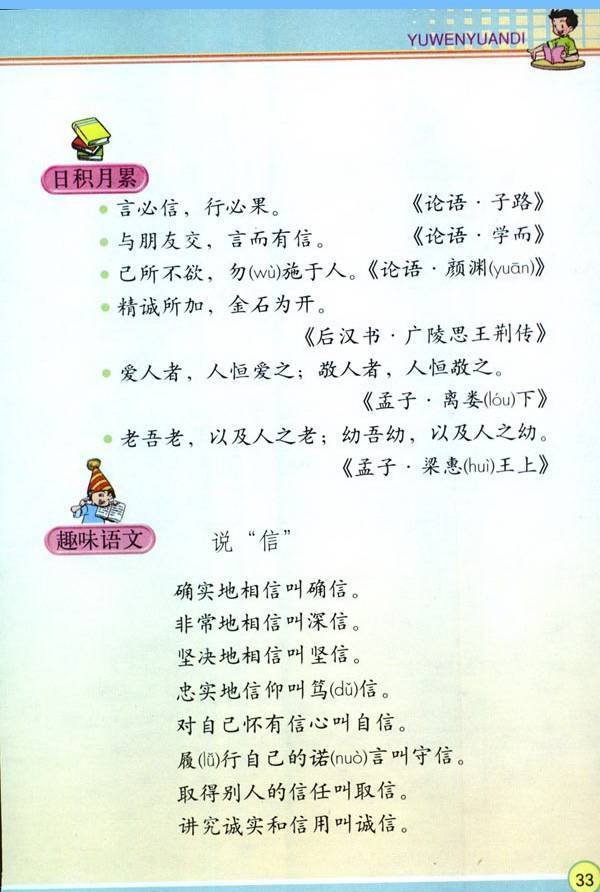 YUWENYUANDI
日积月累
言必信，行必果。 《论语·子路》
与朋友交，言而有信。 《论语·学而》
己所不欲，勿(wù)施于人。《论语·颜渊(yuān)》
精诚所加，金石为开。
《后汉书·广陵思王荆传》
爱人者，人恒爱之；敬人者，人恒敬之。
《孟子·离娄(lóu)下》
老吾老，以及人之老；幼吾幼，以及人之幼。
《孟子·梁惠(huì)王上》
趣味语文 说“信”
确实地相信叫确信。
非常地相信叫深信。
坚决地相信叫坚信。
忠实地信仰叫笃(dǔ)信。
对自己怀有信心叫自信。
履(lǚ)行自己的诺(nuò)言叫守信。
取得别人的信任叫取信。
讲究诚实和信用叫诚信。
33